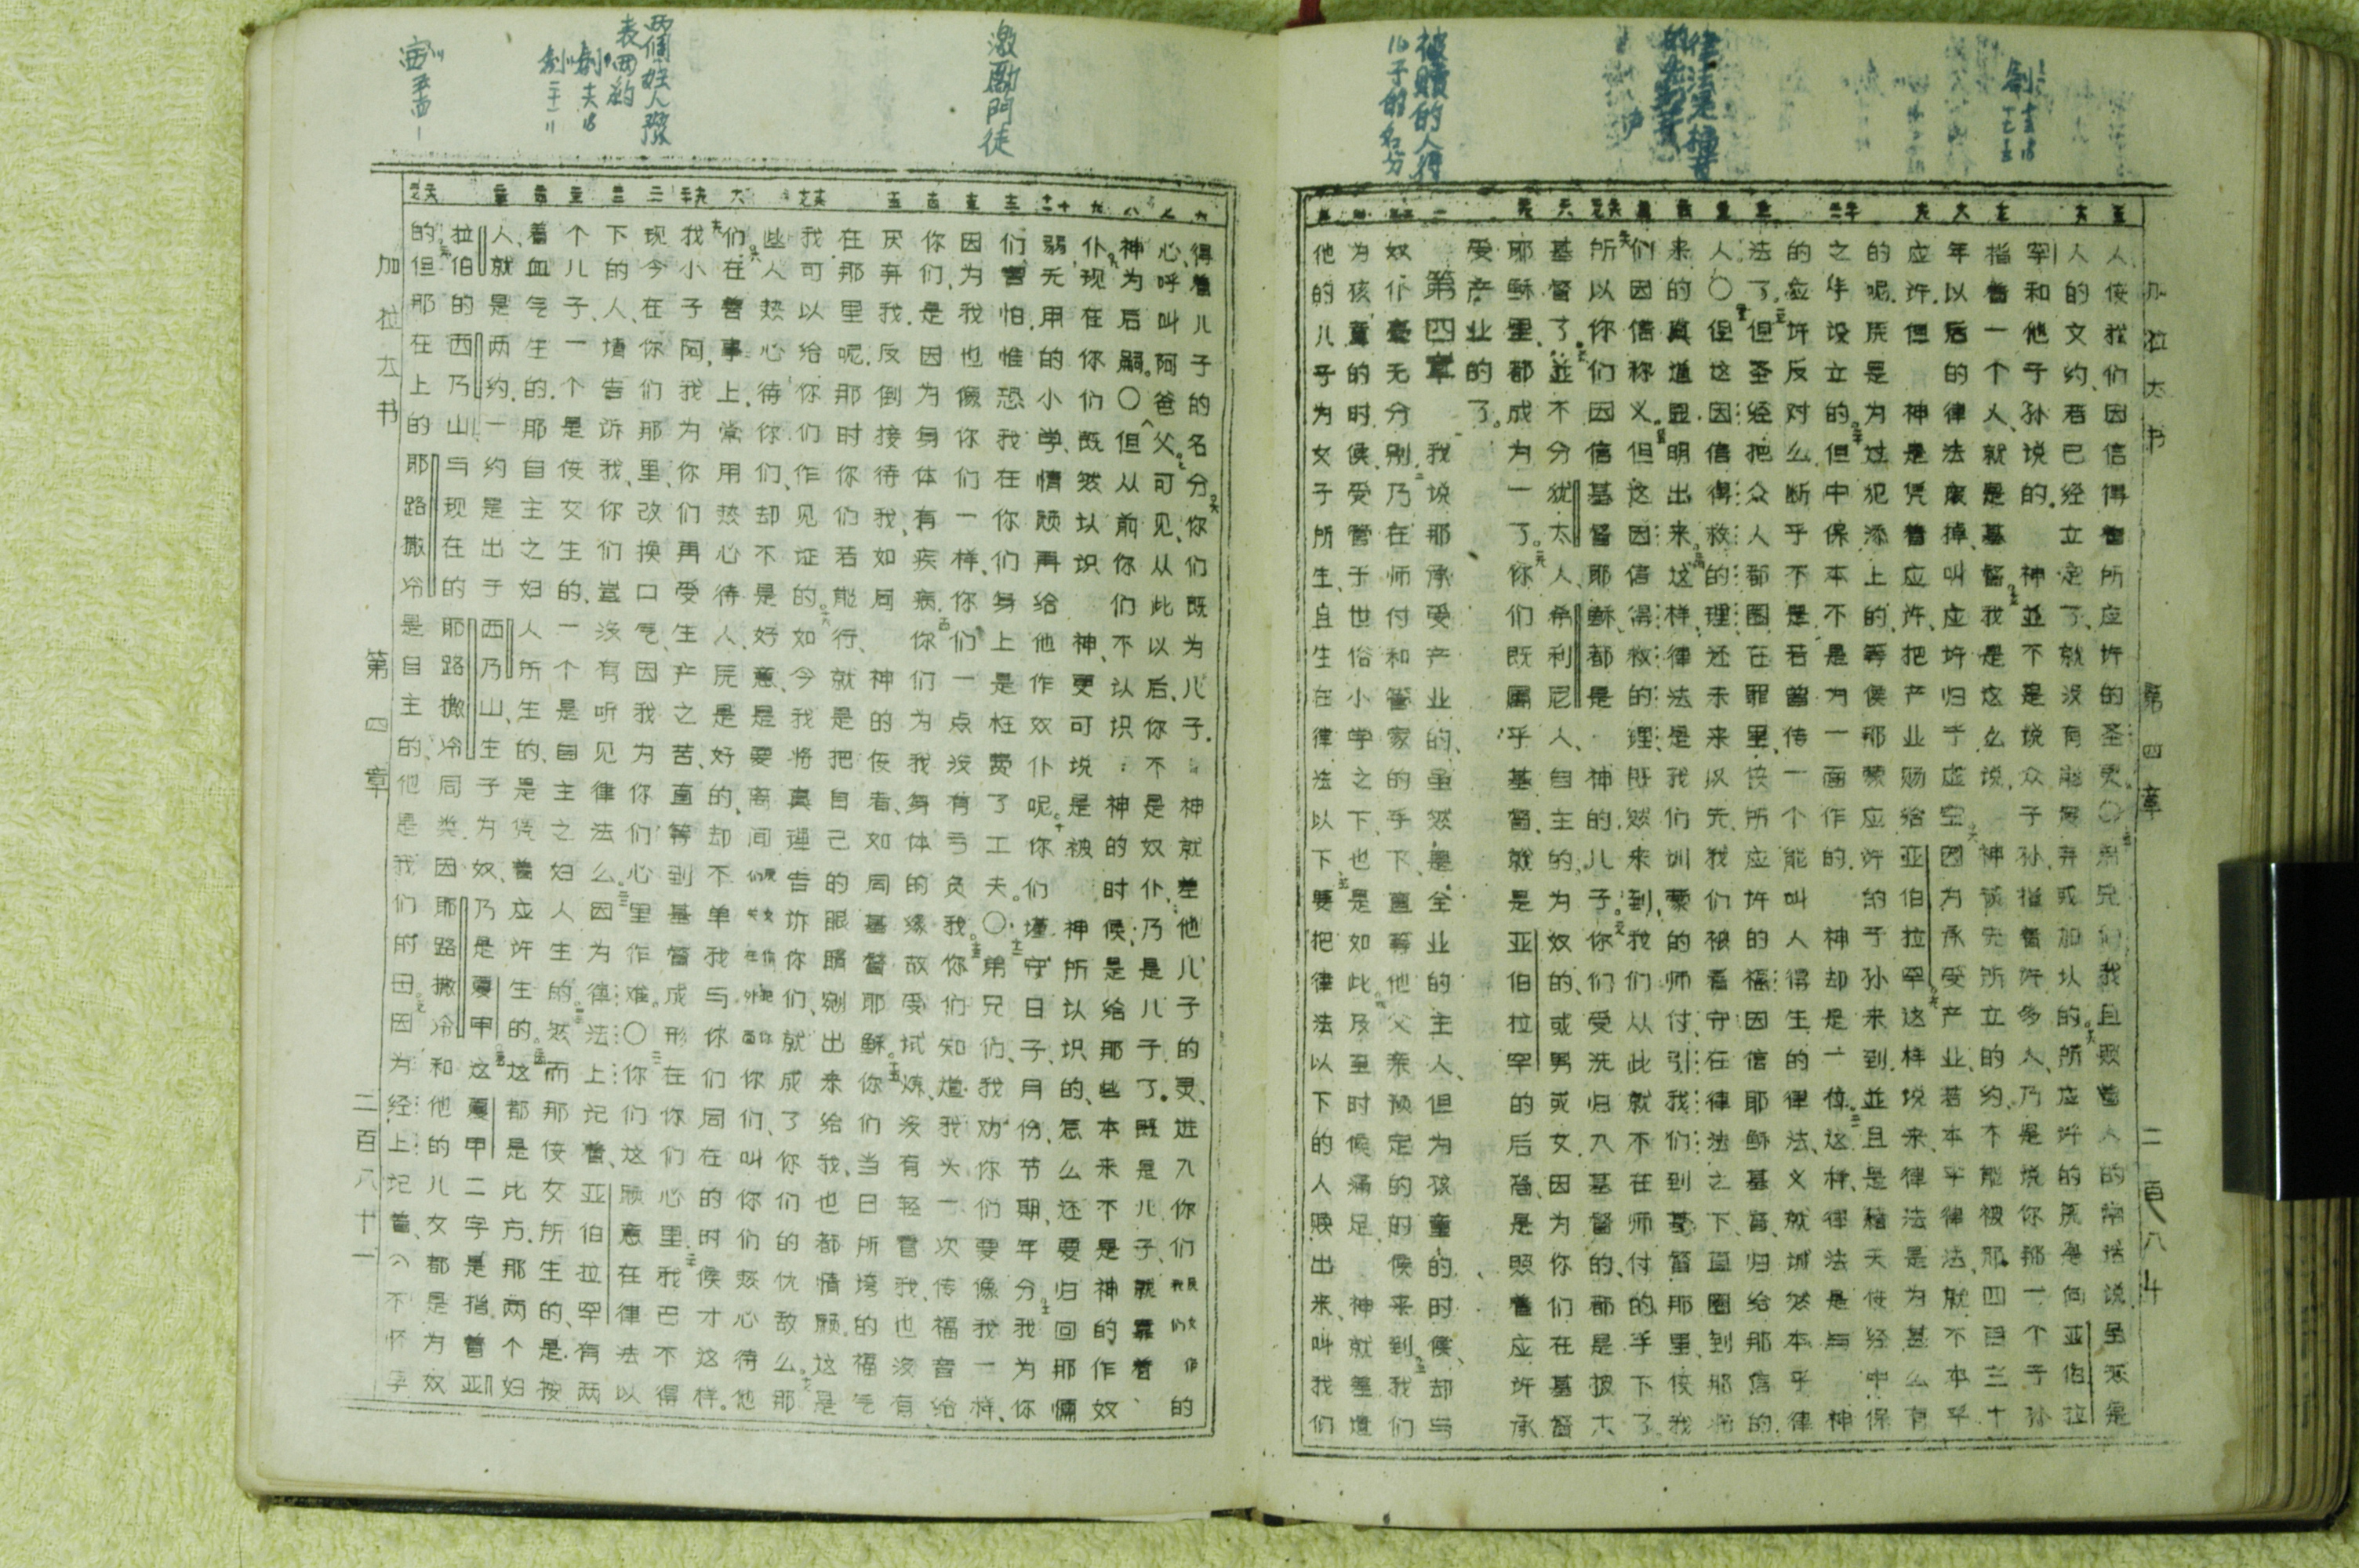 創十三15
十七8
律法是種其
被贖的人得
16子的名分
加拉太书 第四章 二百八十
人使我们因信得着所应许的圣灵〇弟兄们我且照着人的常话说虽然是
人的文约若已经立定了就没有能废弃或加以的所应许的原是向亚伯拉
罕和他子孙说的 神並不是说众子孙指着许多人乃是说你那一个子孙
指着一个人就是基督我是这么说 神预先所立的约不能被那四百三十
年以后的律法废掉叫应许归于虚空因为承受产业若本乎律法就不本乎
应许但 神是凭着应许把产业赐给亚伯拉罕这样说来律法是为甚么有
的呢原是为过犯添上的等候那蒙应许的子孙来到並且是藉天使经中保
之手设立的但中保本不是为一面作的 神却是一位这样律法是与 神
的应许反对么断乎不是若曾传一个能叫人得生的律法义就诚然本乎律
法了但圣经把众人都圈在罪里使所应许的福因信耶稣基督归给那信的
人〇但这因信得救的理还未来以先我们被看守在律法之下直圈到那将
来的真道显明出来这样律法是我们训蒙的师付引我们到基督那里使我
们因信称义但这因信得救的理既然来到我们从此就不在师付的手下了
所以你们因信基督耶稣都是 神的儿子你们受洗归入基督的都是披大
基督了並不分犹太人希利尼人自主的为奴的或男或女因为你们在基督
耶稣里都成为一了你们既属乎基督就是亚伯拉罕的后裔是照着应许承
受产业的了。
第四章 我说那承受产业的虽然是全业的主人但为孩童的时候却与
奴仆毫无分别乃在师付和管家的手下直等他父亲预定的时候来到我们
为孩童的时候受管于世俗小学之下也是如此。及至时候满足 神就差遣
他的儿子为女子所生且生在律法以下要把律法以下的人赎出来叫我们
激勵門徒
两個婦人預
表两約
創十六15
創二十一2
賽五十四1
得着儿子的名分你们既为儿子 神就差他儿子的灵进入你们的
心呼叫阿爸父可见从此以后你不是奴仆乃是儿子了。既是儿子就靠着
神为后嗣。〇但从前你们不认识 神的时候是给那些本来不是神的作奴
仆现在你们既然认识 神更可说是被 神所认识的怎么还要归回那懦
弱无用的小学情愿再给他作奴仆呢。你们谨守日子月份节期年分。我为你
们害怕惟恐我在你们身上是枉费了工夫。〇弟兄们我劝你们要像我一样
因为我也像你们一样你们一点没有亏负我。你们知道我头一次传福音给
你们是因为身体有疾病。你们为我身体的缘故受试炼没有轻看我也没有
厌弃我反倒接待我如同 神的使者如同基督耶稣。你们当日所夸的福气
在那里呢那时你们若能行就是把自己的眼睛剜出来给我也都情愿这是
我可以给你们作见证的。如今我将真理告诉你们就成了你们的仇敌么。那
些人热心待你们却不是好意是要离间你们叫你们热心待他
们。在善事上常用热心待人原是好的却不单我与你们同在的时候才这样。
我小子阿我为你们再受生产之苦直等到基督成形在你们心里。我巴不得
现今在你们那里改换口气因我为你们心里作难。〇你们这愿意在律法以
下的人请告诉我你们岂没有听见律法么。因为律法上记着亚伯拉罕有两
个儿子一个是使女生的一个是自主之妇人生的。然而那使女所生的是按
着血气生的那自主之妇人所生的是凭着应许生的。这都是比方那两个妇
人就是两约一约是出于西乃山生子为奴乃是夏甲。这夏甲二字是指着亚
拉伯的西乃山与现在的耶路撒冷同类因耶路撒冷和他的儿女都是为奴
的。但那在上的耶路撒冷是自主的他是我们的母。因为经上记着不怀孕
加拉太书 第四章 二百八十一